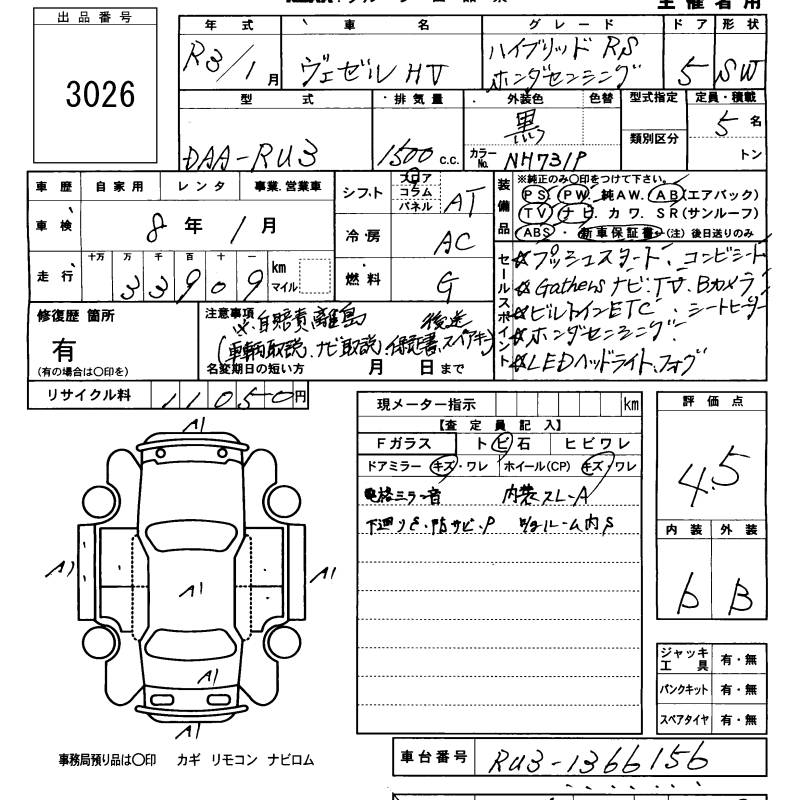 主催者用
出品番号
3026
年式 車名 グレード ドア 形状
R3/1月 ヴェゼル HV ハイブリッド RS ホンダセンシング 5 SW
型式 排気量 外装色 色替 型式指定 定員・積載
DAA-RU3 1500 c.c. 黒 類別区分 5名
カラーNo. NH731P トン
車歴 自家用 レンタ 事業.営業車
シフト フロア コラム パネル AT
装備品 ※純正のみ○印をつけて下さい。
PS. PW. 純AW. AB(エアバック)
TV. ナビ. カワ. SR(サンルーフ)
ABS. 新車保証書 (注)後日送りのみ
車検 8年 1月
冷房 AC
走行 十万 万 千 百 十 一 km マイル
33909
燃料 G
セールスポイント
☆プッシュスタート. コンビシート
☆Gathersナビ.TV.Bカメラ
☆ビルトインETC. シートヒーター
☆ホンダセンシング.
☆LEDヘッドライト.フォグ
修復歴 箇所
有
(有の場合は○印を)
注意事項
※自賠責離島 後送
(車輌取説、ナビ取説、保証書、スペアキー)
名変期日の短い方 月 日まで
リサイクル料 11050円
現メーター指示 km
【査定員記入】
Fガラス トビ石 ヒビワレ
ドアミラー キズ・ワレ ホイール(CP) キズ・ワレ
電格ミラー音 内装スレ-A
下廻りS.防サビ.P ラゲルーム内S
評価点
4.5
内装 外装
b B
A1
A1 A1 A1
A1
A1
ジャッキ工具 有・無
パンクキット 有・無
スペアタイヤ 有・無
事務局預り品は○印 カギ リモコン ナビロム
車台番号 RU3-1366156